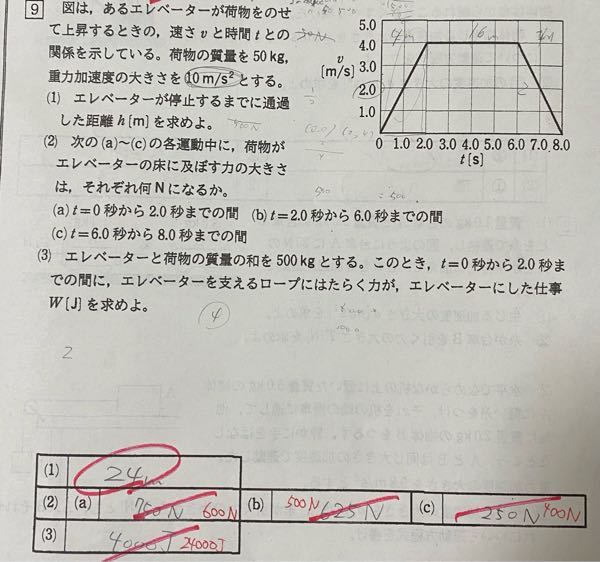 9 図は，あるエレベーターが荷物をのせ
て上昇するときの，速さvと時間tとの
関係を示している。荷物の質量を50kg，
重力加速度の大きさを10m/s²とする。
(1) エレベーターが停止するまでに通過
した距離h〔m〕を求めよ。
(2) 次の(a)～(c)の各運動中に，荷物が
エレベーターの床に及ぼす力の大きさ
は，それぞれ何Nになるか。
(a) t=0秒から2.0秒までの間 (b) t=2.0秒から6.0秒までの間
(c) t=6.0秒から8.0秒までの間
(3) エレベーターと荷物の質量の和を500kgとする。このとき，t=0秒から2.0秒ま
での間に，エレベーターを支えるロープにはたらく力が，エレベーターにした仕事
W〔J〕を求めよ。
5.0
4.0
v 3.0
[m/s]
2.0
1.0
0
0 1.0 2.0 3.0 4.0 5.0 6.0 7.0 8.0
t[s]
4m 16m 4m
④
2
(1) 24m
(2) (a) 750N 600N (b) 500N 625N (c) 250N 400N
(3) 4000J 24000J